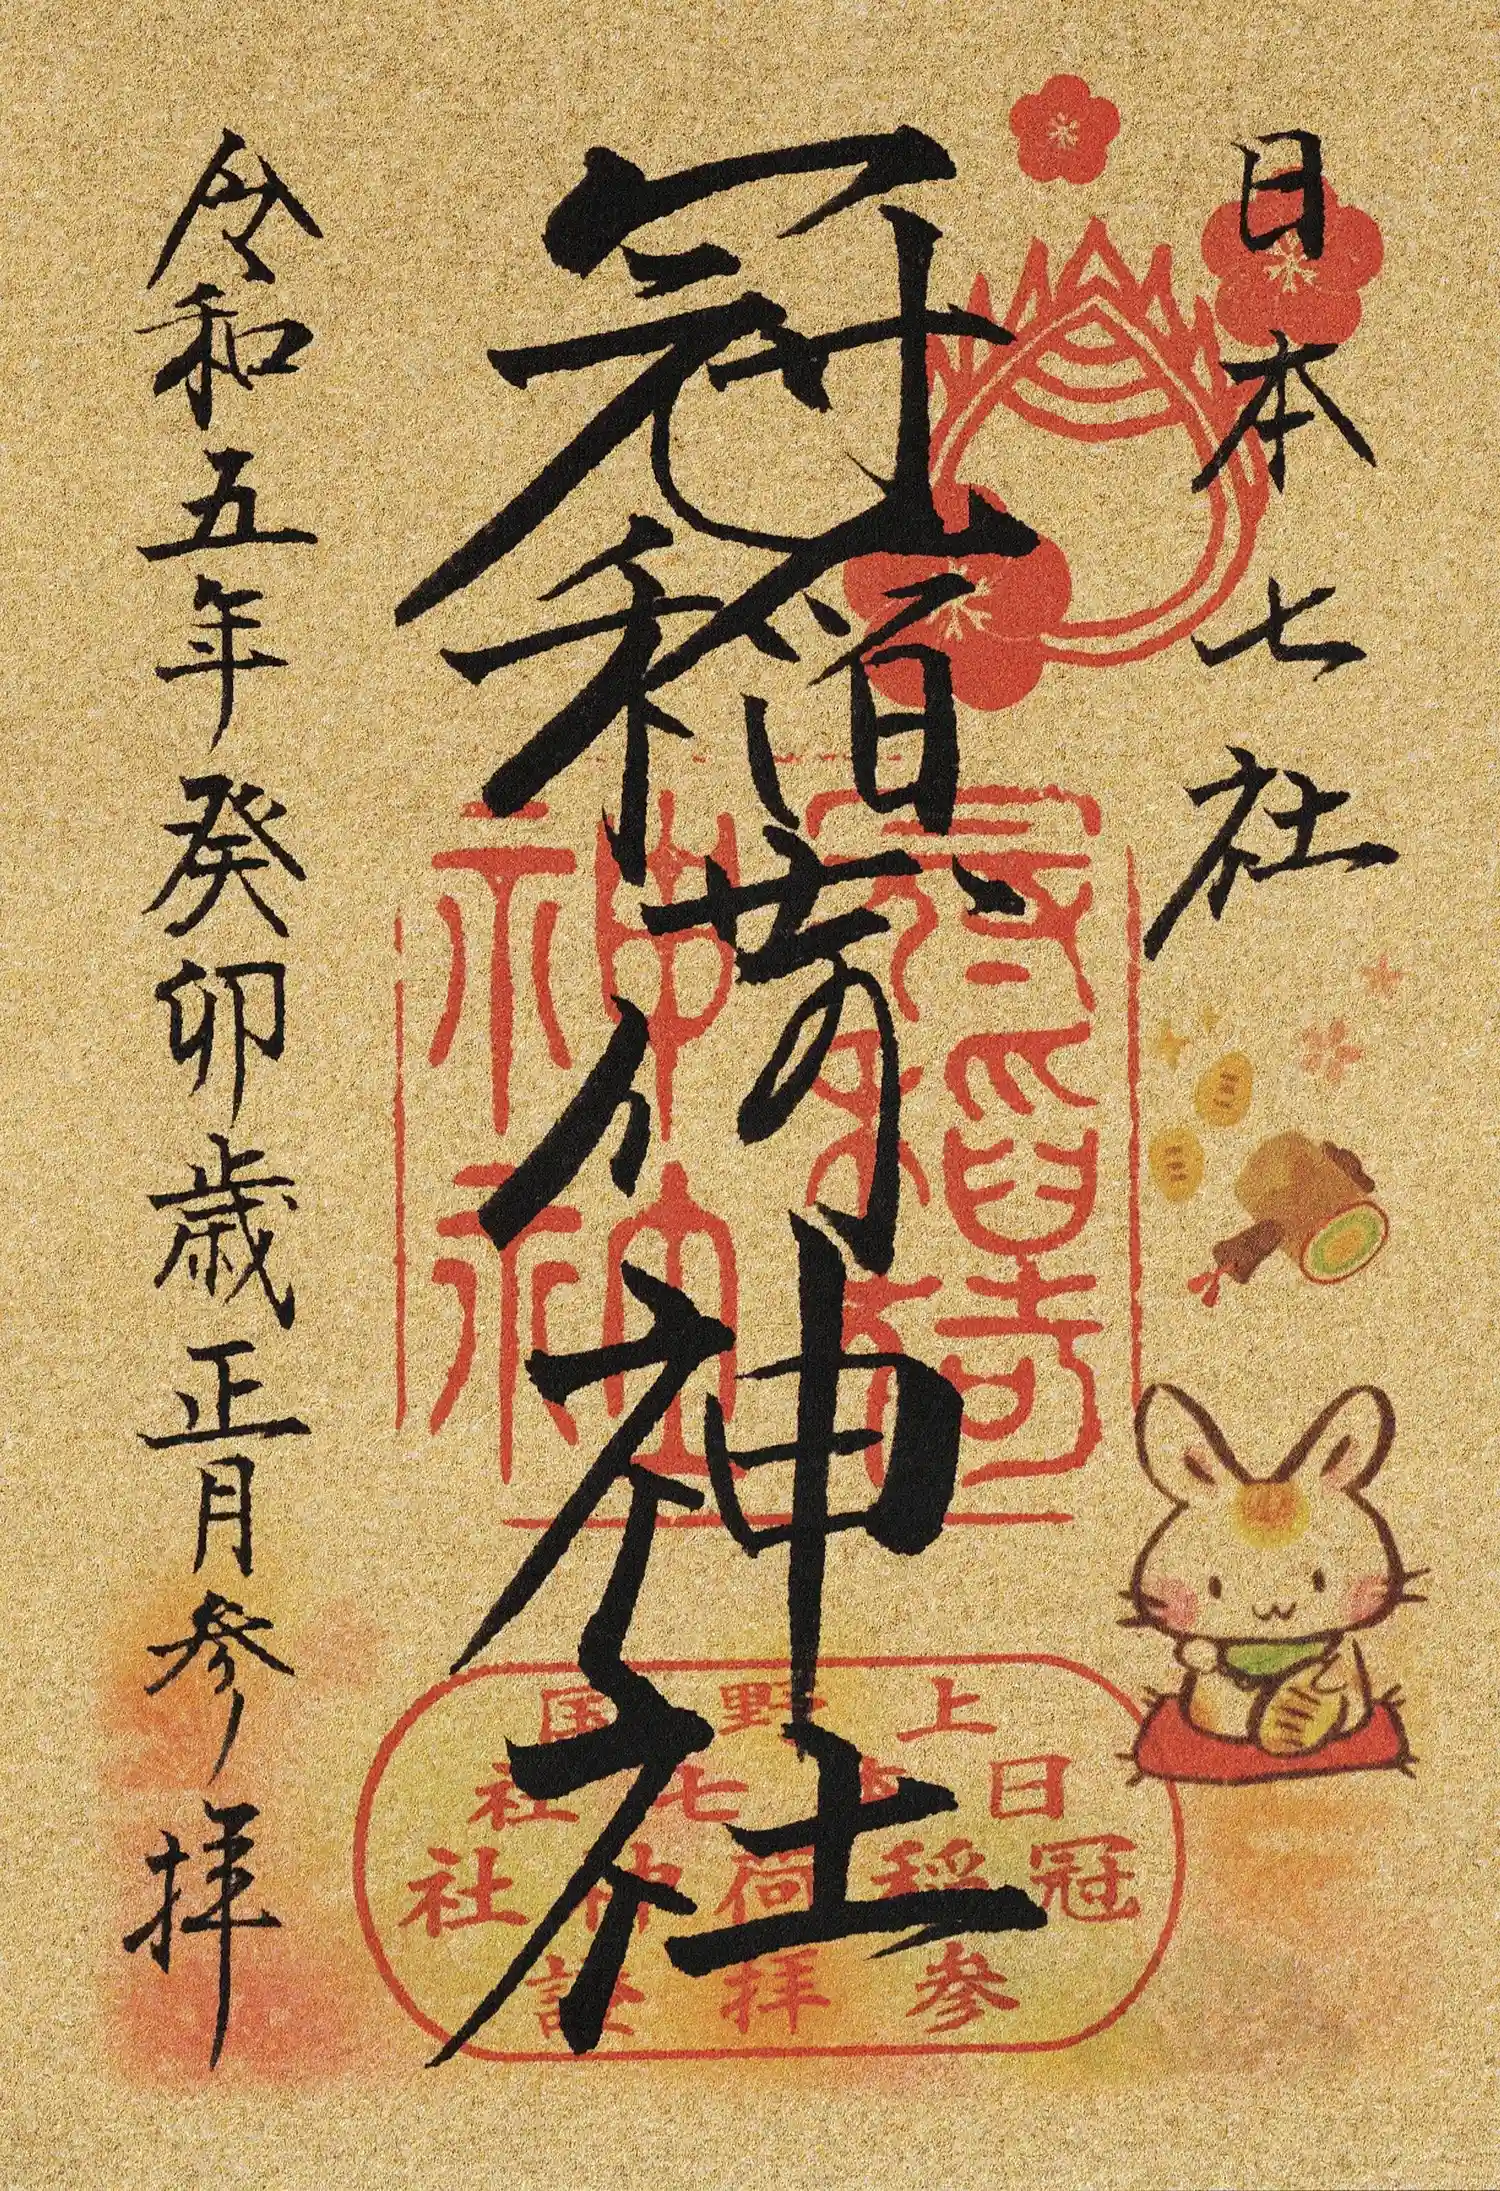 日本七社
冠稲荷神社
令和五年癸卯歳正月参拝
冠稲荷
神社
上野国
日本七社
冠稲荷神社
参拝證